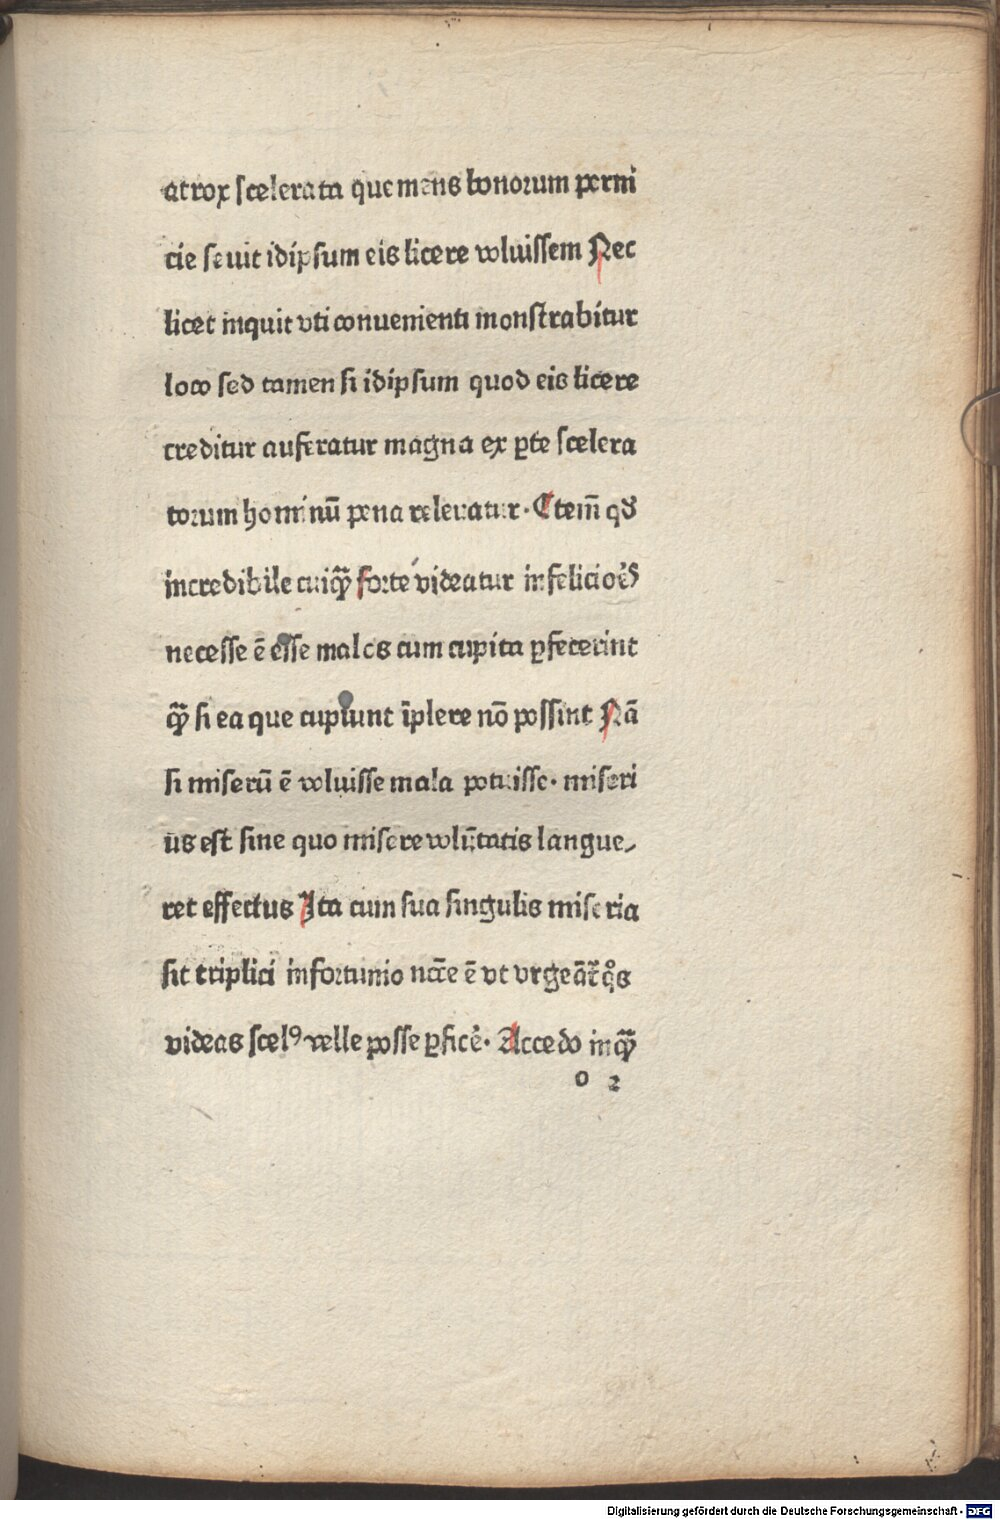 atrox scelerata que mens bonorum perni
cie seuit idipsum eis licere voluissem Nec
licet inquit vti conuenienti monstrabitur
loco sed tamen si idipsum quod eis licere
creditur auferatur magna ex ꝑte scelera
torum hominū pena releuatur· Etem̄ qđ
incredibile cuiqȝ̄ forte videatur infelicioēs
necesse ē esse malos cum cupita ꝑfecerint
qȝ̄ si ea que cupiunt īplere nō possint Nā
si miserū ē voluisse mala potuisse· miseri
us est sine quo misere volūtatis langue-
ret effectus Ita cum sua singulis miseria
sit triplici infortunio ncc̄e ē vt vrgeāt̄ qͦs
videas scelꝰ velle posse ꝑficē· Accedo inqȝ̄
o 2
Digitalisierung gefördert durch die Deutsche Forschungsgemeinschaft - DFG